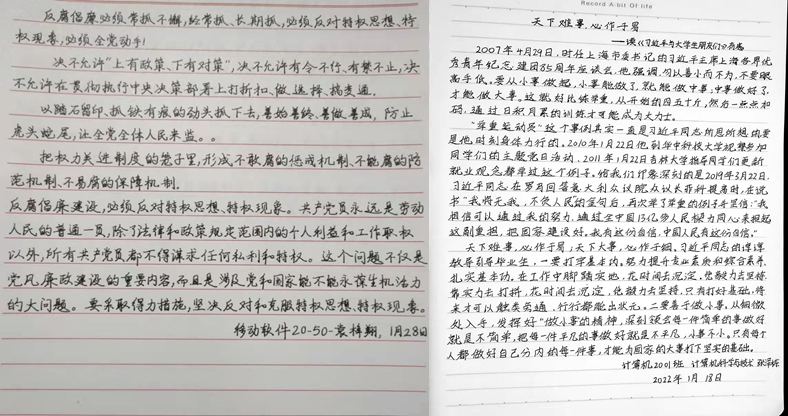 反腐倡廉必须常抓不懈，经常抓、长期抓，必须反对特权思想、特
权现象，必须全党动手！
决不允许“上有政策、下有对策”，决不允许有令不行、有禁不止，决
不允许在贯彻执行中央决策部署上打折扣、做选择、搞变通。
以踏石留印、抓铁有痕的劲头抓下去，善始善终、善做善成，防止
虎头蛇尾，让全党全体人民来监。。
把权力关进制度的笼子里，形成不敢腐的惩戒机制、不能腐的防
范机制、不易腐的保障机制。
反腐倡廉建设，必须反对特权思想、特权现象。共产党员永远是劳动
人民的普通一员，除了法律和政策规定范围内的个人利益和工作职权
以外，所有共产党员都不得谋求任何私利和特权。这个问题不仅是
党风廉政建设的重要内容，而且是涉及党和国家能不能永葆生机活力
的大问题。要采取得力措施，坚决反对和克服特权思想、特权现象。
移动软件20-50-袁梓翔，1月28日
Record A bit Of life
天下难事，必作于易
——读《习近平与大学生朋友们》有感
2007年4月29日，时任上海市委书记的习近平出席上海各界优
秀青年纪念建团85周年座谈会，他强调，勿以善小而不为，不要眼
高手低。要从小事做起，小事能做了，就能做中事；中事做好了，
才能做大事。这就好比练举重，从开始的四五十斤，然后一点点加
码，通过日积月累的训练才可能成为大力士。
“举重运动员”这个事例其实一直是习近平同志所思所想的，更
是他时刻身体力行的。2010年1月22日他到华中科技大学观摩参加
同学们的主题党日活动、2011年1月22日吉林大学指导同学们更新
就业观念都举过这个例子。给我们印象深刻的是2019年3月22日，
习近平同志在罗马回答意大利众议院众议长菲科提问时，在说
书“我将无我，不负人民的宣句后，再次举了举重的例子并坚信：“我
相信可以通过我的努力，通过全中国13亿多人民勠力同心来担起
这副重担，把国家建设好。我有这份自信，中国人民有这份自信。”
天下难事，必作于易，天下大事，必作于细。习近平同志的谆谆
教导引导毕业生，一要打牢基本功。努力提升专业素质和综合素养，
扎实基本功。在工作中脚踏实地，花时间去沉淀，凭毅力去坚持，
靠实力去打拼，花时间去沉淀，凭毅力去坚持，只有打好基础，将
来才可以触类旁通、行行都能出状元。二要善于做小事，从细微
处入手，发挥好“做小事的精神，深刻领会每一件简单的事做好
就是不简单，把每一件平凡的事做好就是不平凡，小事不小。只有每个
人都做好自己分内的每一件事，才能为国家的大事打下坚实的基础。
计算机2001班 计算机科学与技术
2022年1月18日